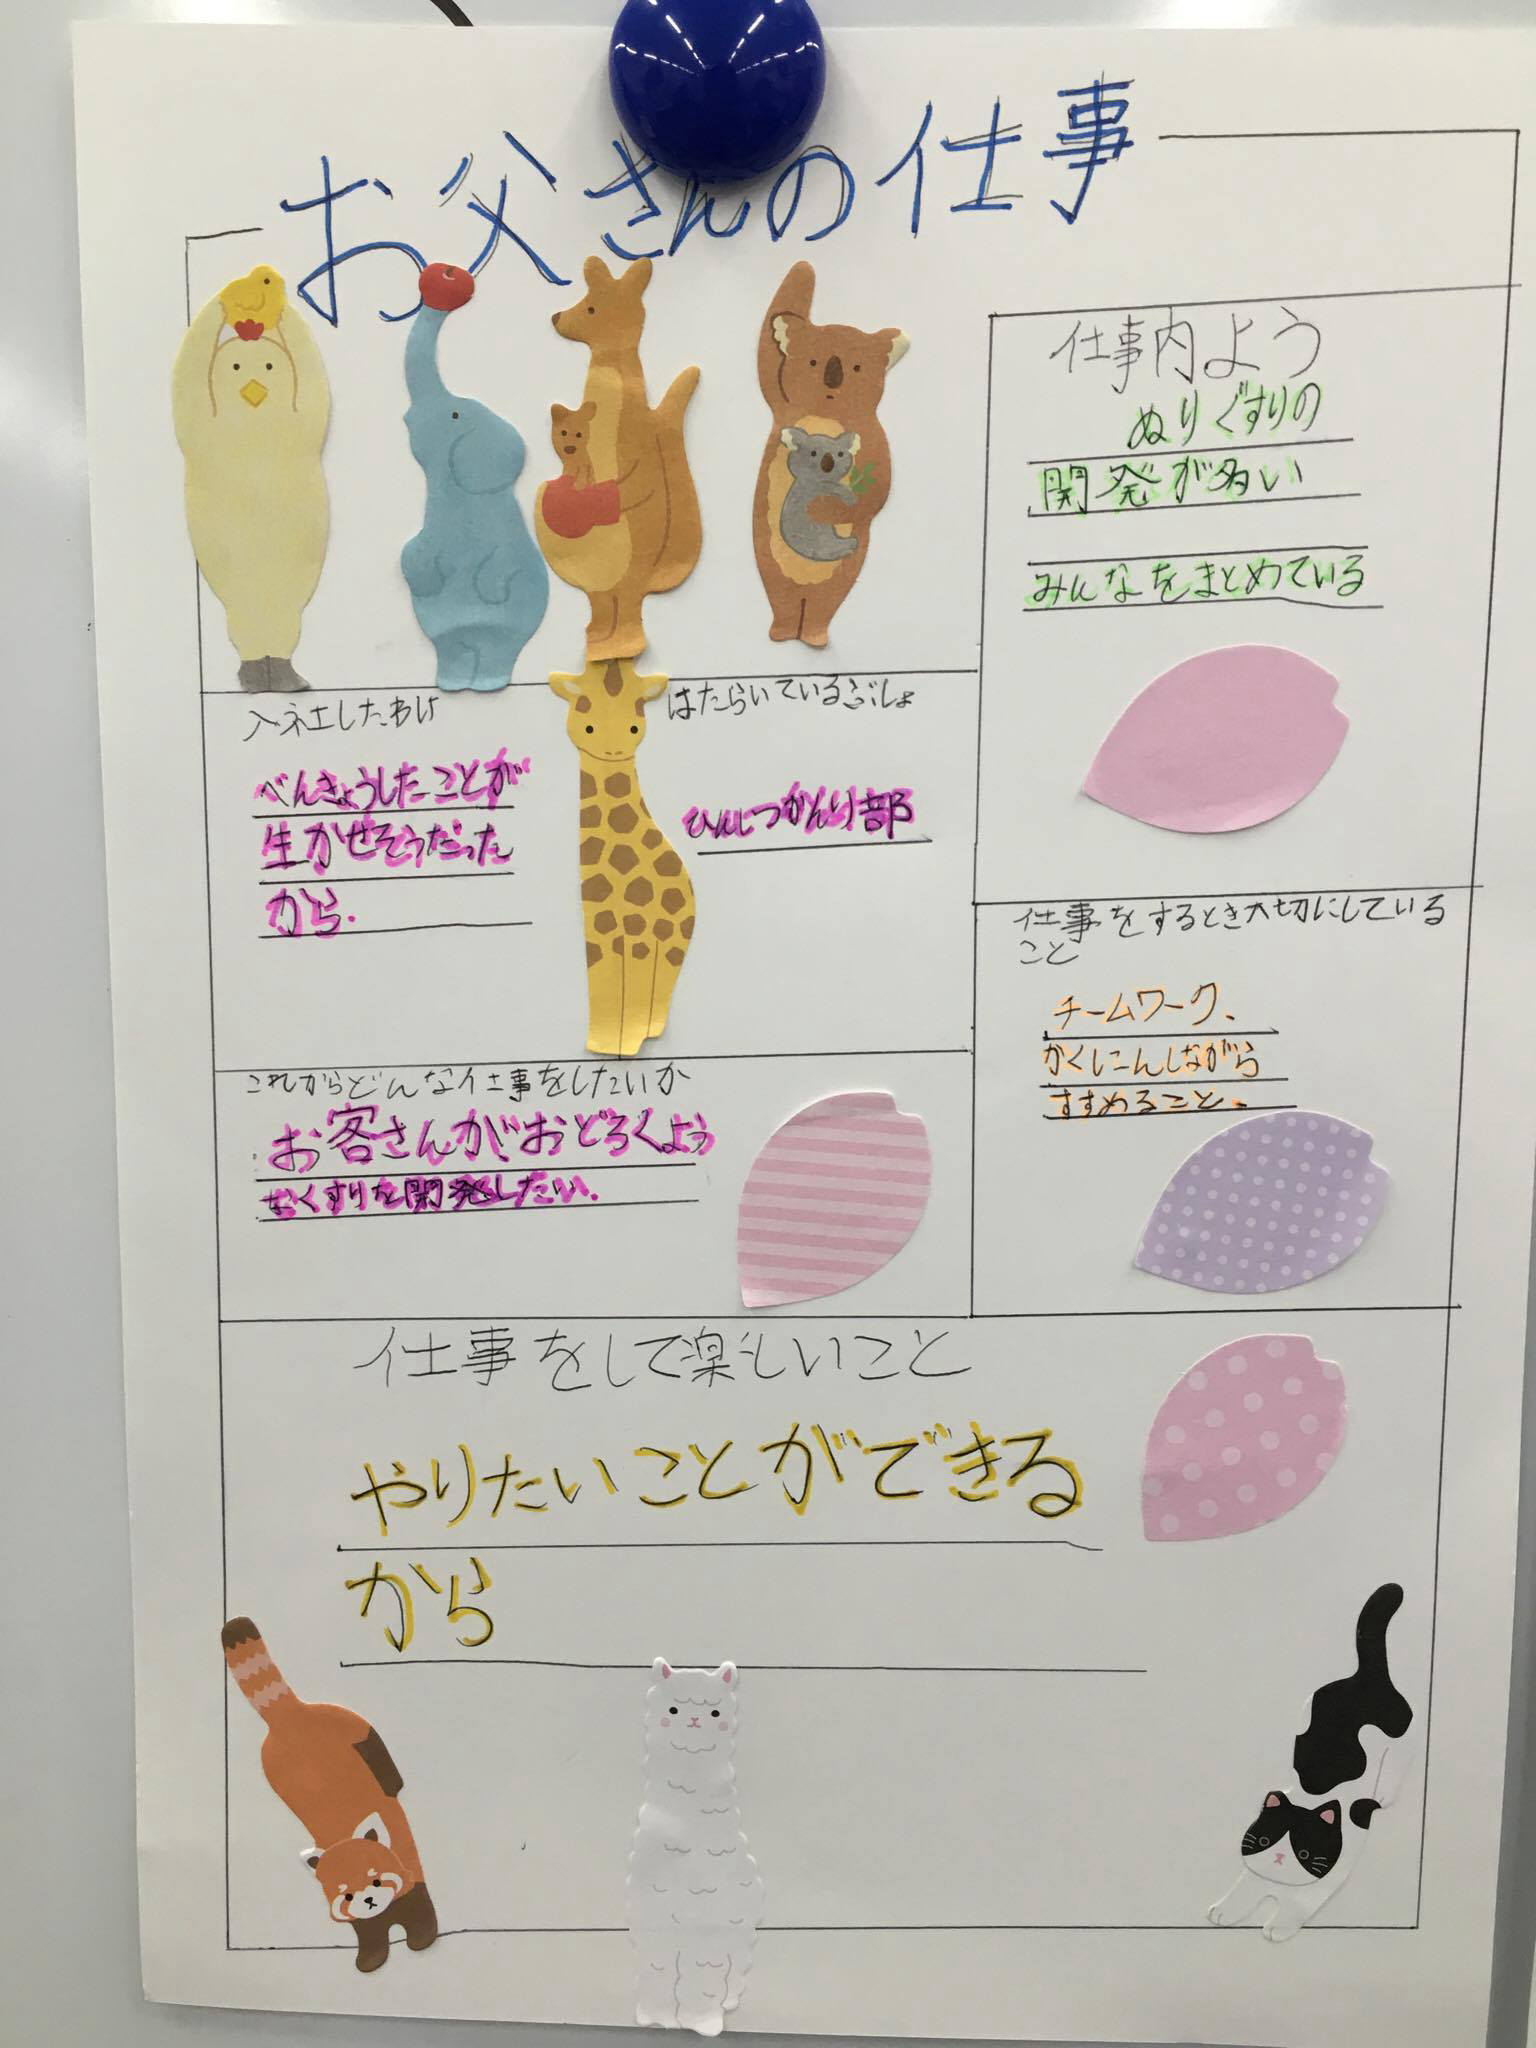 お父さんの仕事
仕事内よう
ぬりぐすりの
開発が多い
みんなをまとめている
入社したわけ
べんきょうしたことが
生かせそうだった
から.
はたらいているぶしょ
ひんしつかんり部
仕事をするとき大切にしている
こと
チームワーク、
かくにんしながら
すすめること、
これからどんな仕事をしたいか
お客さんがおどろくよう
なくすりを開発したい.
仕事をして楽しいこと
やりたいことができる
から